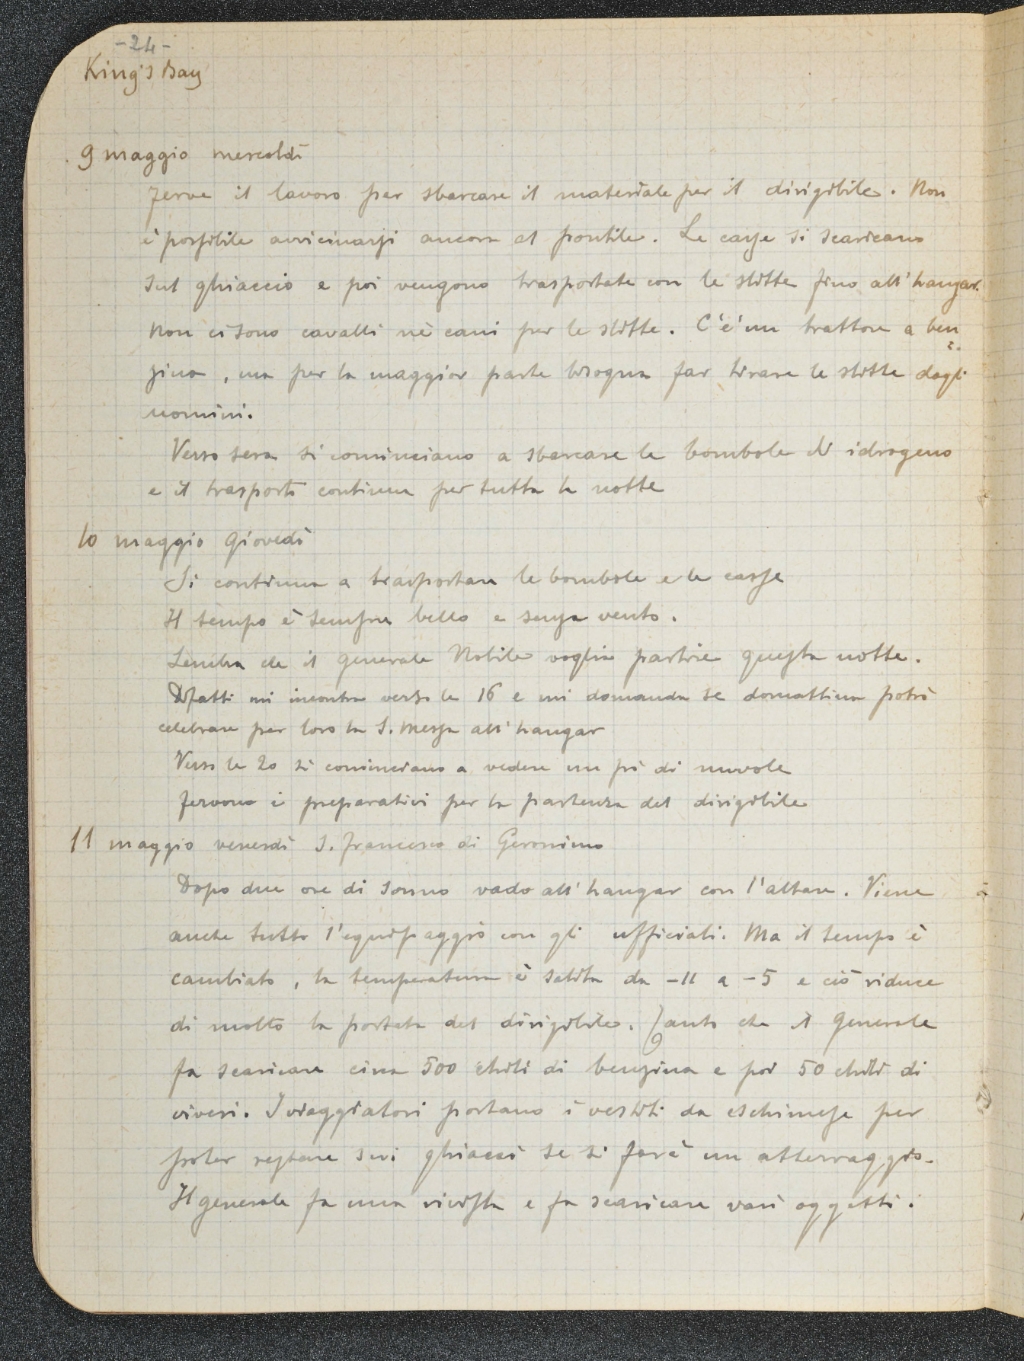 -24-
King's Bay
9 maggio mercoldì
Ferve il lavoro per sbarcare il materiale per il dirigibile. Non
è possibile avvicinarsi ancora al pontile. Le casse si scaricano
sul ghiaccio e poi vengono trasportate con le slitte fino all'hangar.
Non ci sono cavalli nè cani per le slitte. C'è un trattore a ben
zina, ma per la maggior parte bisogna far tirare le slitte dagli
uomini.
Verso sera si cominciano a sbarcare le bombole di idrogeno
e il trasporto continua per tutta la notte
10 maggio giovedì
Si continua a trasportare le bombole e le casse
Il tempo è sempre bello e senza vento.
Sembra che il generale Nobile voglia partire questa notte.
Difatti mi incontra verso le 16 e mi domanda se domattina potrò
celebrare per loro la S. Messa all'hangar
Verso le 20 si cominciano a vedere un pò di nuvole
Fervono i preparativi per la partenza del dirigibile
11 maggio venerdì S. Francesco di Geronimo
Dopo due ore di sonno vado all'hangar con l'altare. Viene
anche tutto l'equipaggio con gli ufficiali. Ma il tempo è
cambiato, la temperatura è salita da -11 a -5 e ciò riduce
di molto la portata del dirigibile. Tanto che il generale
fa scaricare circa 500 chili di benzina e poi 50 chili di
viveri. I viaggiatori portano i vestiti da eschimese per
poter restare sui ghiacci se si farà un atterraggio.
Il generale fa una rivista e fa scaricare vari oggetti: